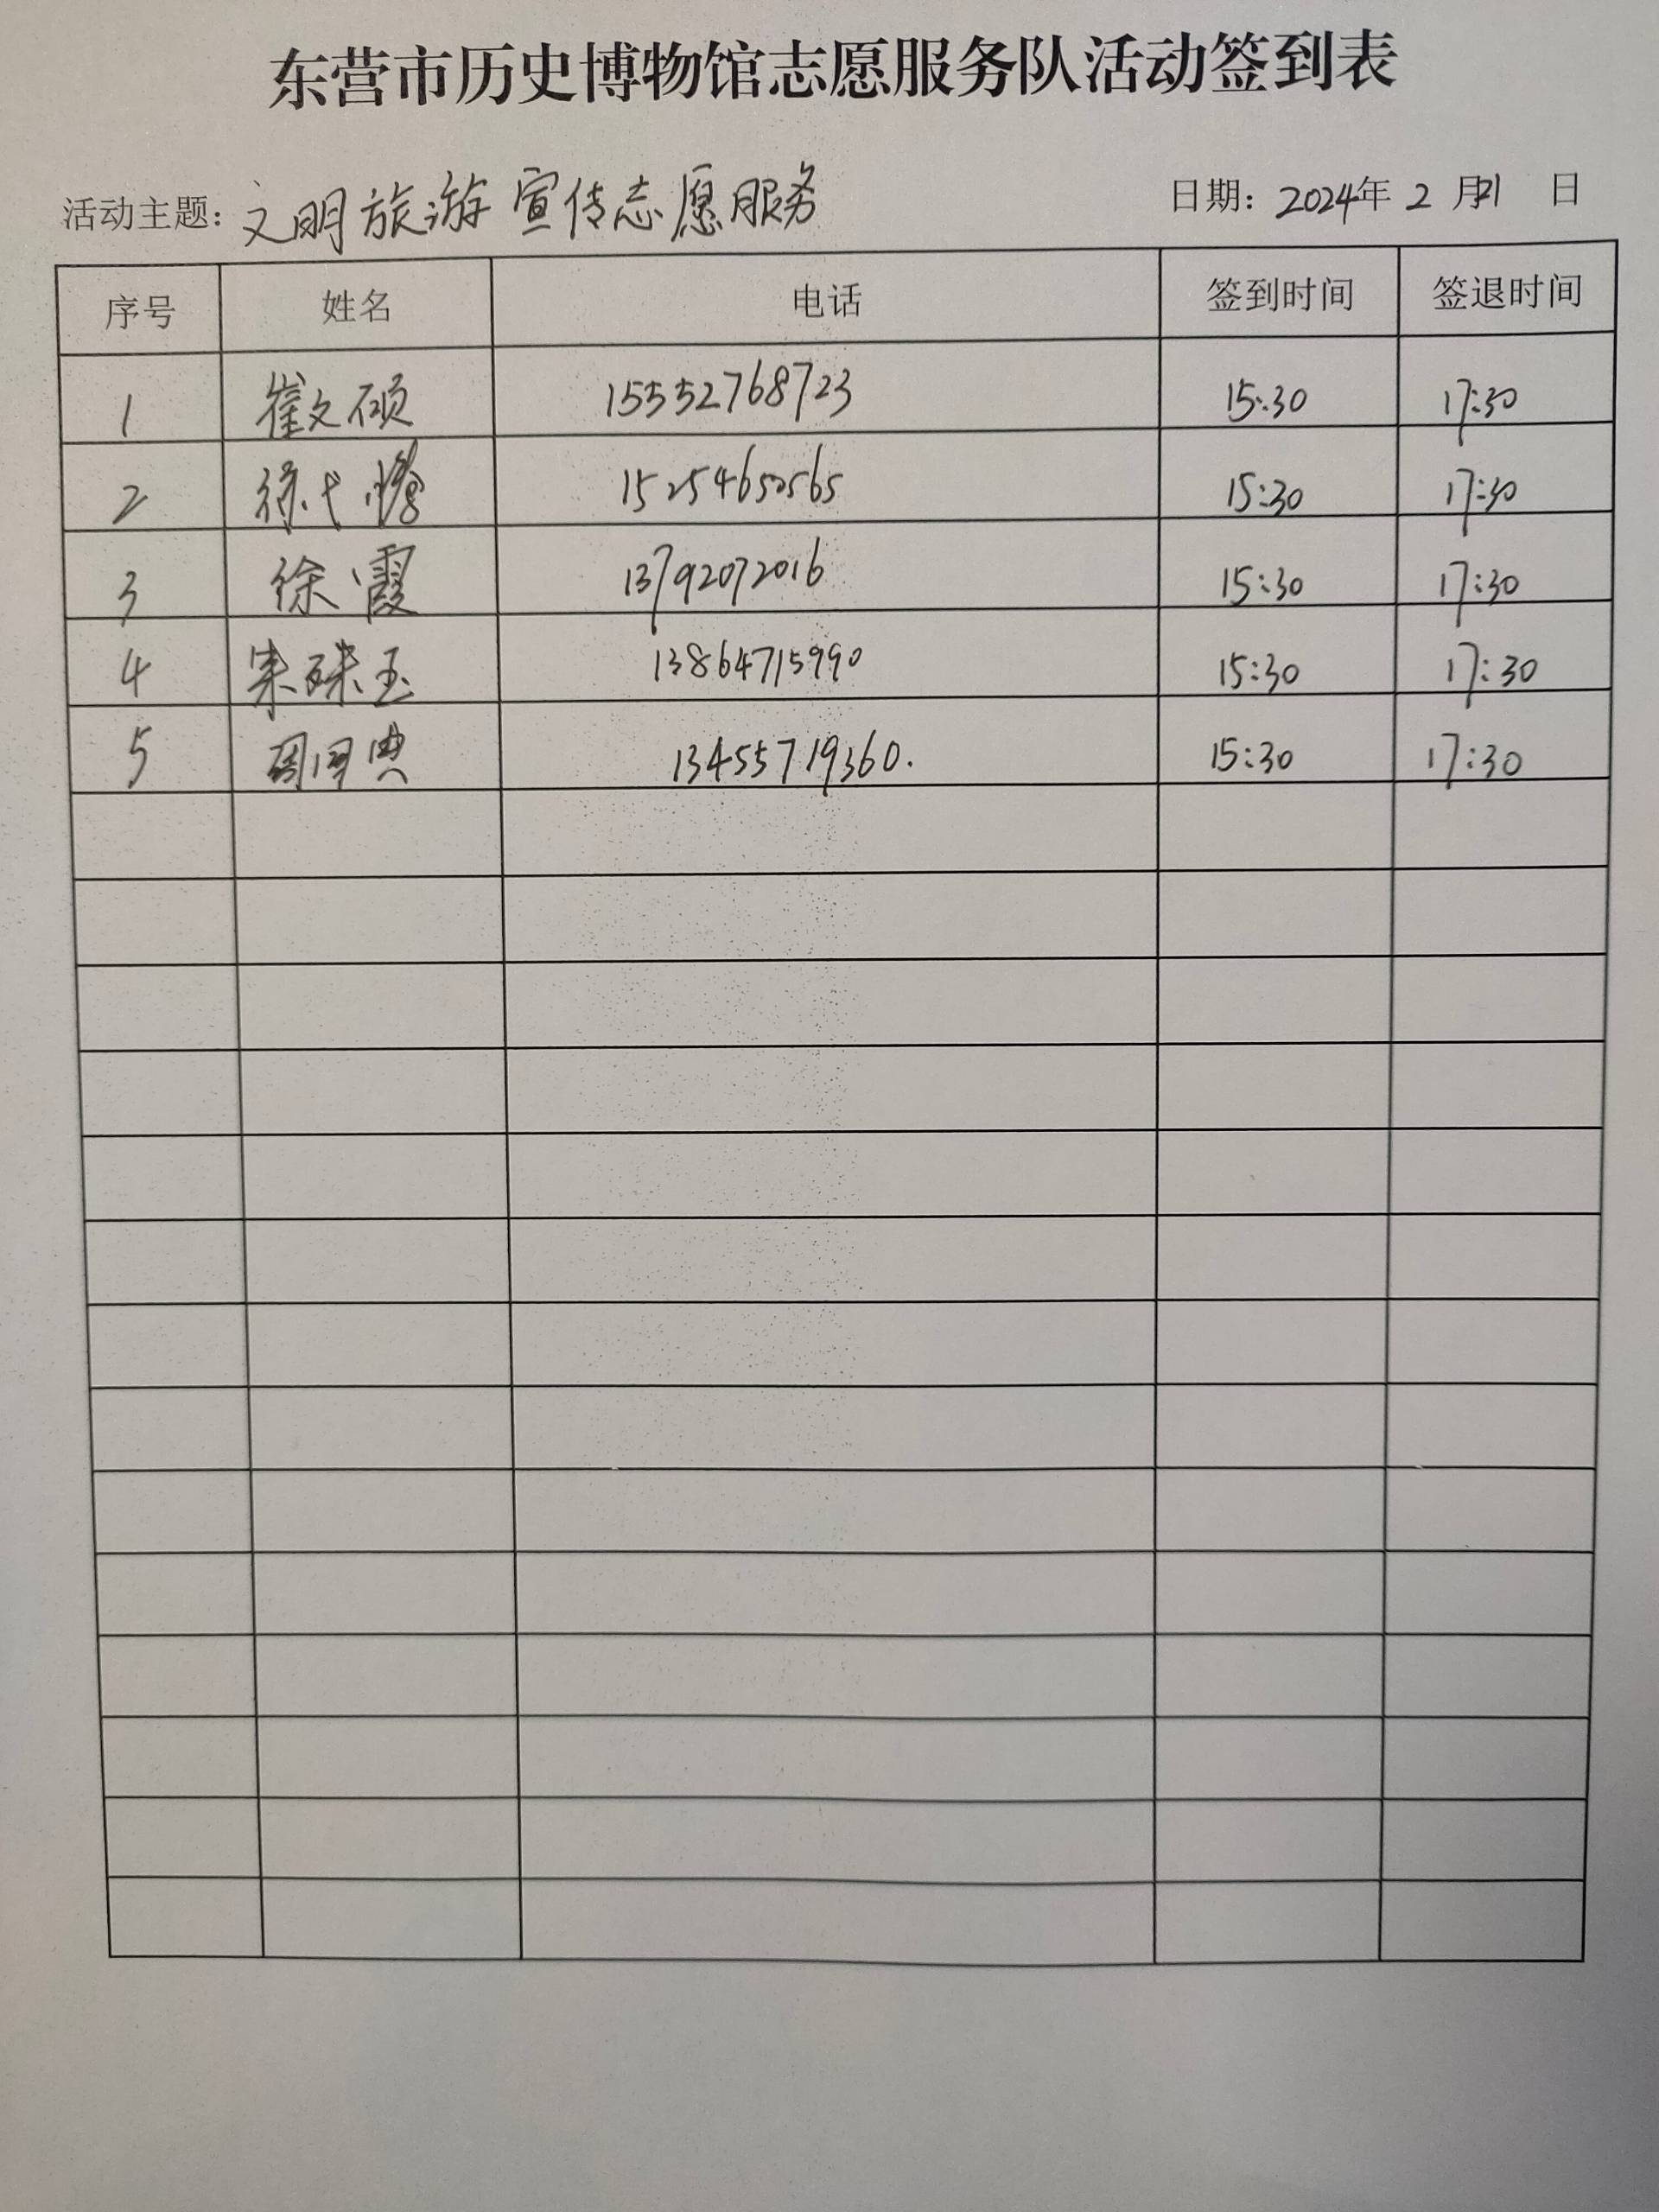 东营市历史博物馆志愿服务队活动签到表
活动主题：文明旅游宣传志愿服务 日期：2024年 2 月21 日
序号 姓名 电话 签到时间 签退时间
1 崔文硕 15552768723 15:30 17:30
2 徐代 15254650565 15:30 17:30
3 徐霞 13792072016 15:30 17:30
4 朱珠玉 13864715990 15:30 17:30
5 周国典 13455719360. 15:30 17:30